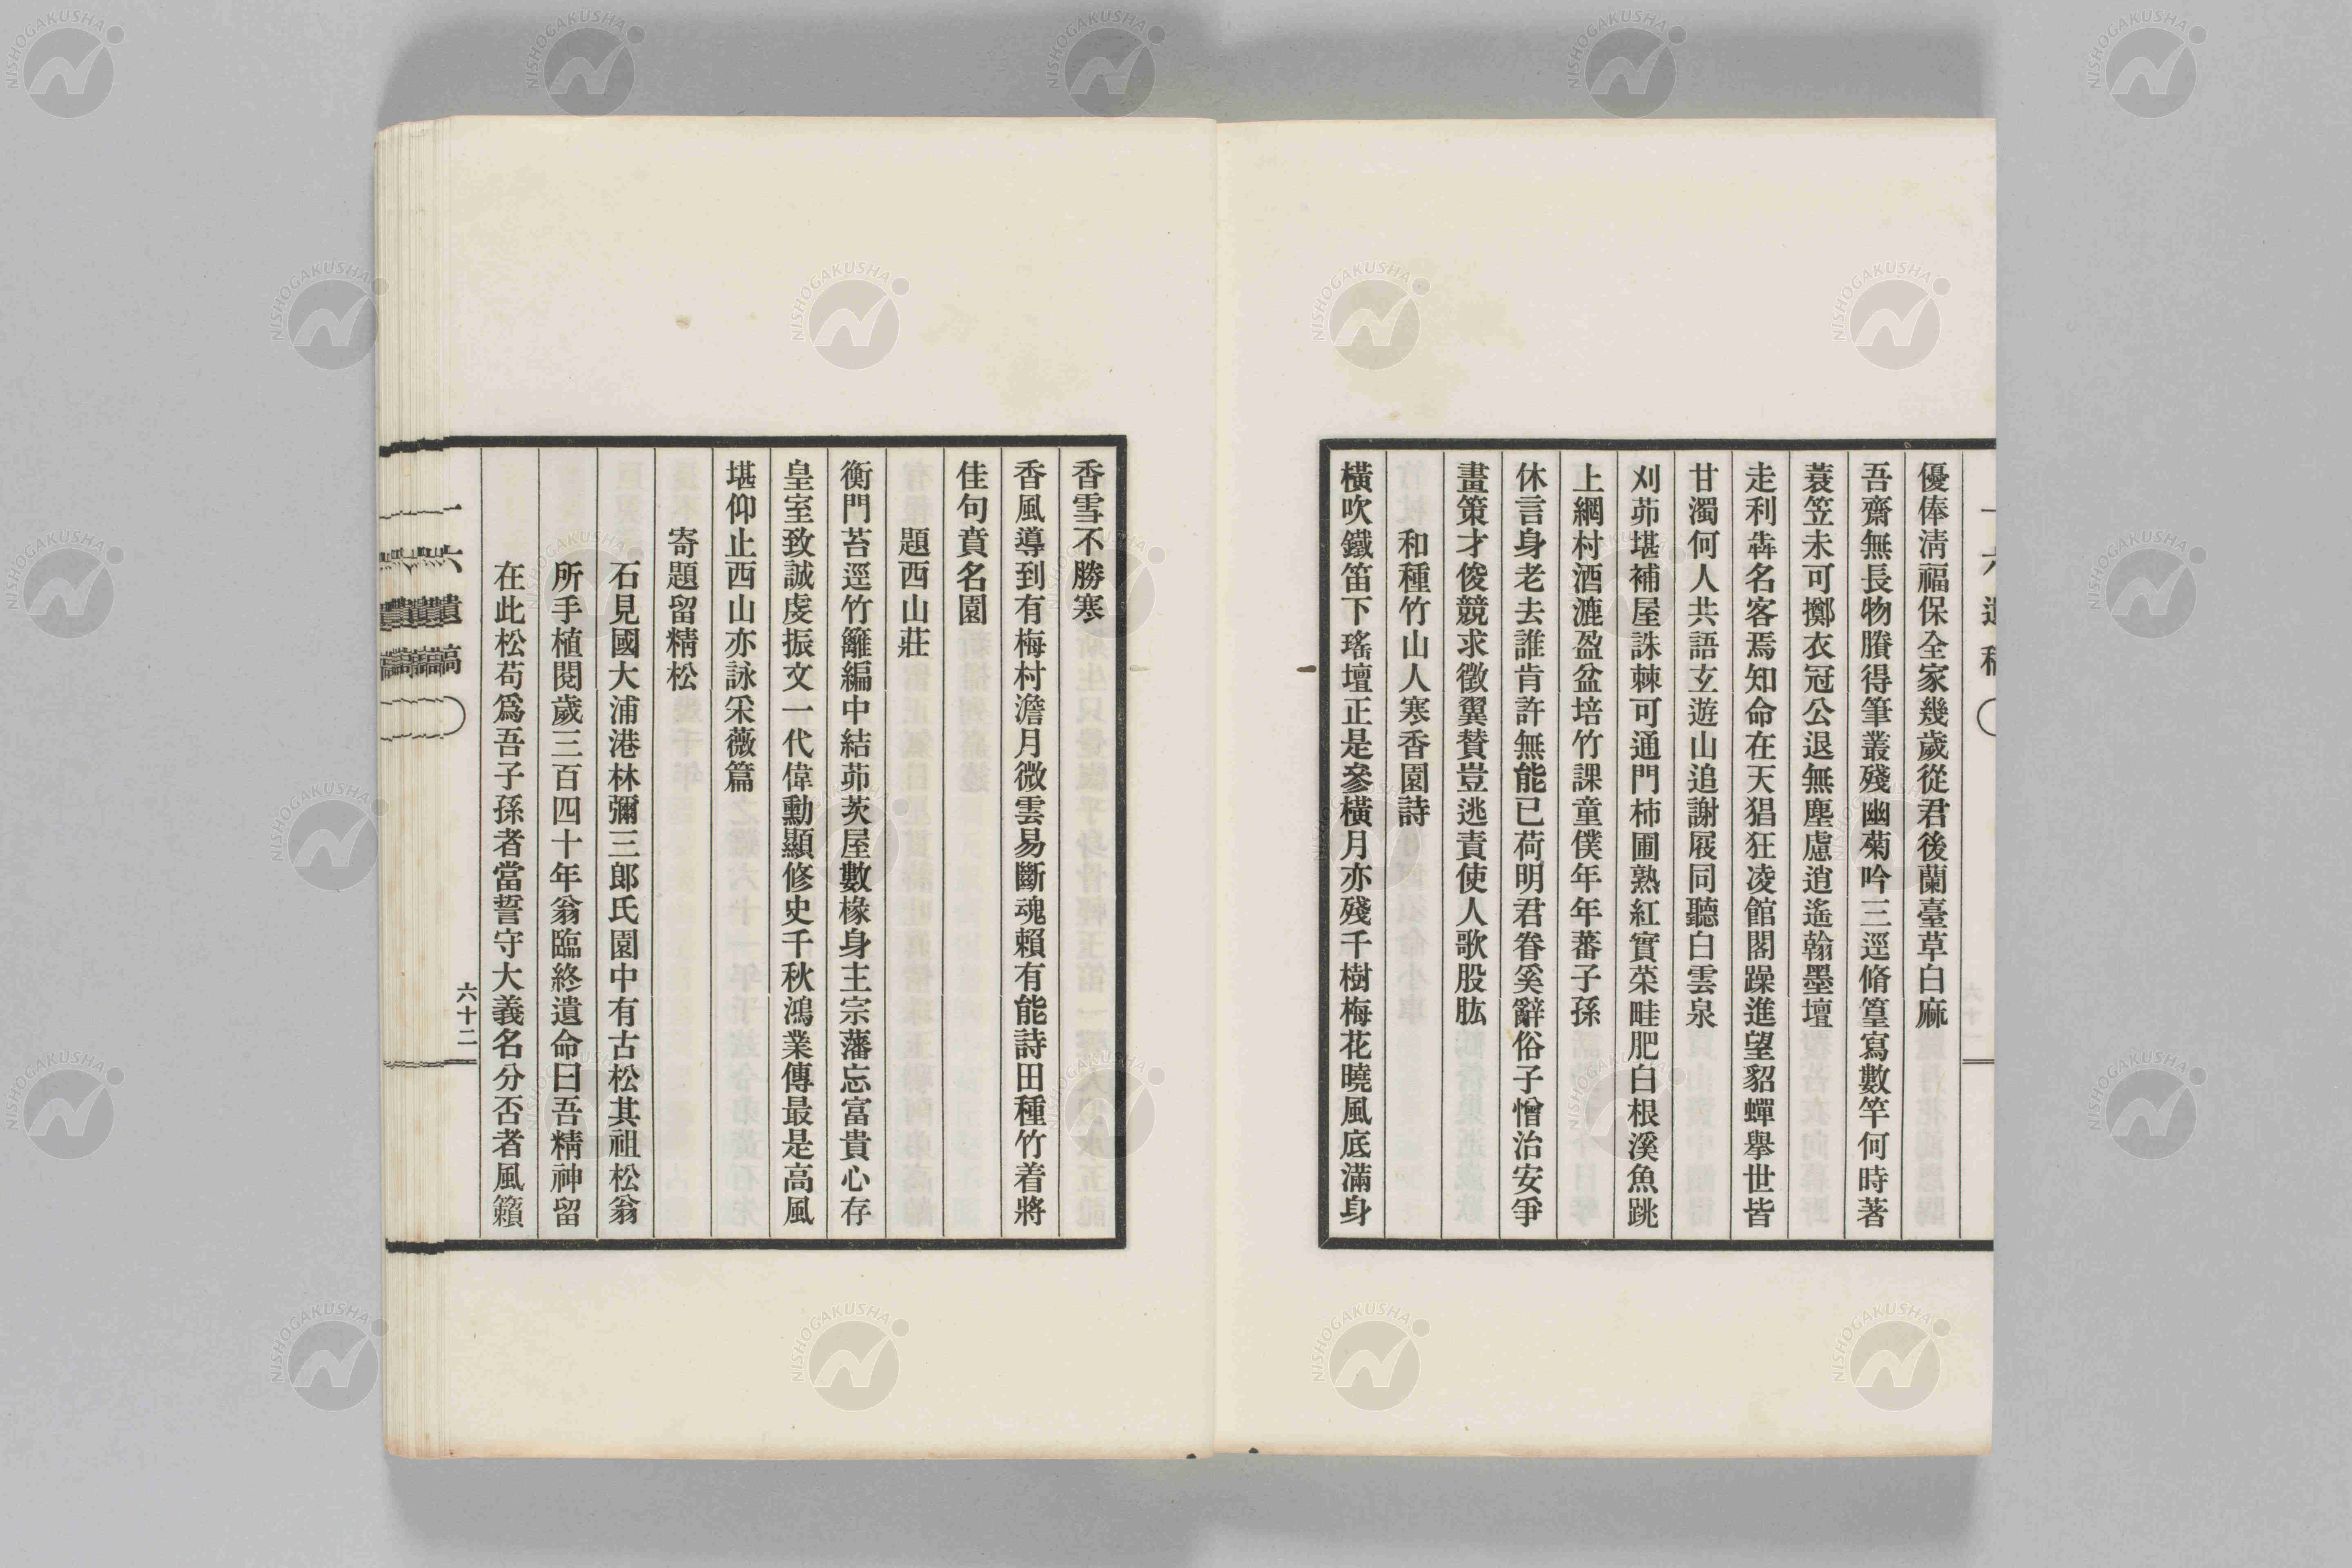 優俸淸福保全家幾歲從君後蘭臺草白麻
吾齋無長物賸得筆叢殘幽菊吟三逕脩篁寫數竿何時著
蓑笠未可擲衣冠公退無塵慮逍遙翰墨壇
走利犇名客焉知命在天猖狂凌館閣躁進望貂蟬擧世皆
甘濁何人共語玄遊山追謝屐同聽白雲泉
刈茆堪補屋誅棘可通門柿圃熟紅實菜畦肥白根溪魚跳
上網村酒漉盈盆培竹課童僕年年蕃子孫
休言身老去誰肯許無能已荷明君眷奚辭俗子憎治安爭
畫策才俊競求徵翼賛豈逃責使人歌股肱
和種竹山人寒香園詩
橫吹鐵笛下瑤壇正是參橫月亦殘千樹梅花曉風底滿身
香雪不勝寒
香風導到有梅村澹月微雲易斷魂賴有能詩田種竹着將
佳句賁名園
題西山莊
衡門苔逕竹籬編中結茆茨屋數椽身主宗藩忘富貴心存
皇室致誠虔振文一代偉勳顯修史千秋鴻業傳最是高風
堪仰止西山亦詠采薇篇
寄題留精松
石見國大浦港林彌三郎氏園中有古松其祖松翁
所手植閱歲三百四十年翁臨終遺命曰吾精神留
在此松苟爲吾子孫者當誓守大義名分否者風籟
一六遺稿
六十二
NISHOGAKUSHA